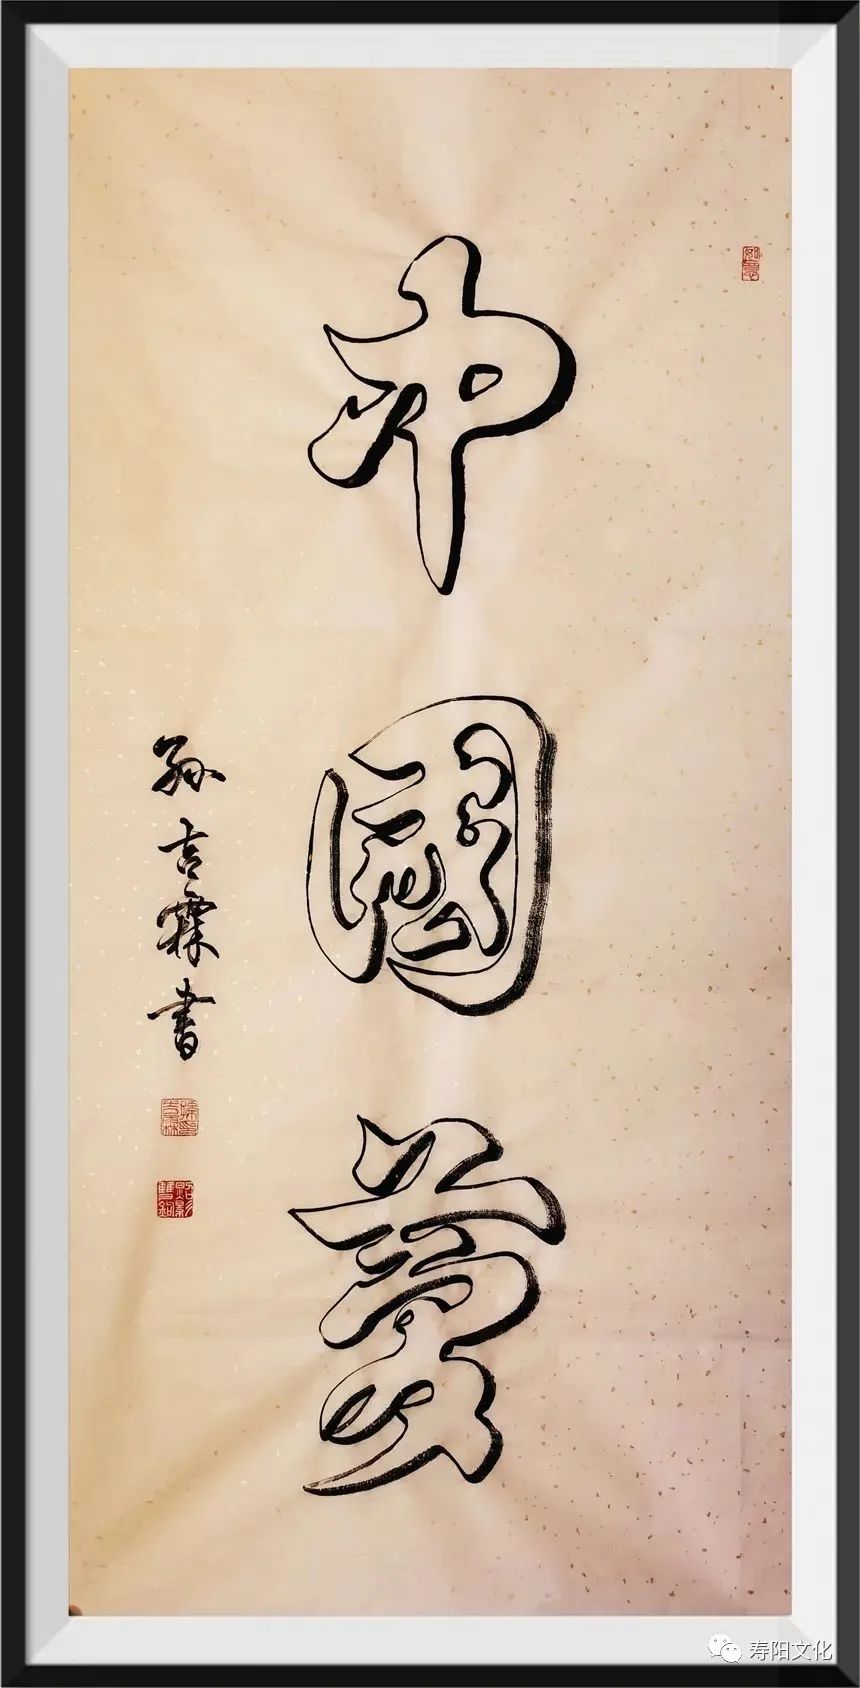 中國夢
孙吉霖書
寿阳文化